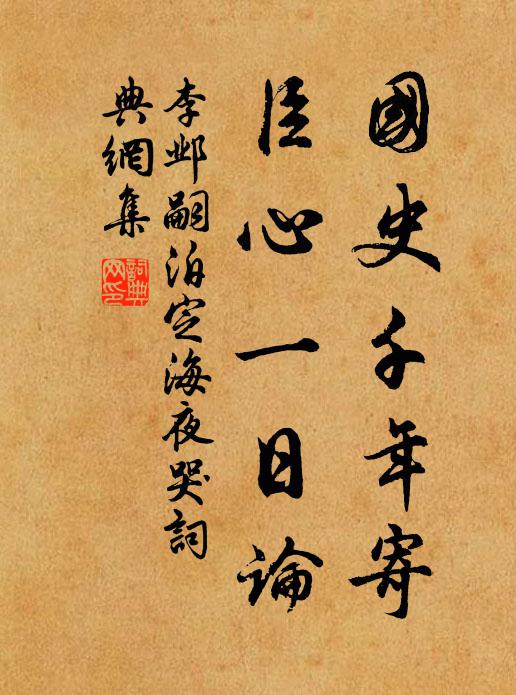 國史千年寄
臣心一日論
李邺嗣泊定海夜哭詞
典網集
詞典网印